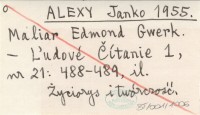 ALEXY Janko 1955.
Maliar Edmond Gwerk.
– Ľudové Čítanie 1,
nr 21: 488-489, il.
Życiorys i twórczość.